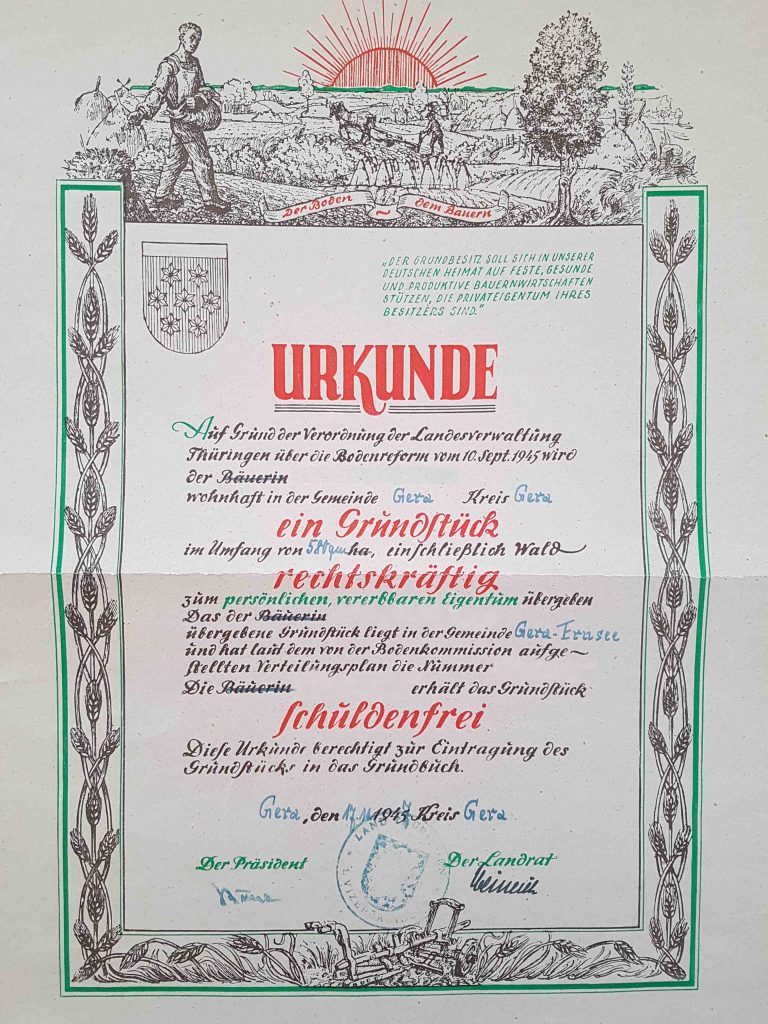 Der Boden ~ dem Bauern
„DER GRUNDBESITZ SOLL SICH IN UNSERER
DEUTSCHEN HEIMAT AUF FESTE, GESUNDE
UND PRODUKTIVE BAUERNWIRTSCHAFTEN
STÜTZEN, DIE PRIVATEIGENTUM IHRES
BESITZERS SIND."
URKUNDE
Auf Grund der Verordnung der Landesverwaltung
Thüringen über die Bodenreform vom 10. Sept. 1945 wird
der Bäuerin
wohnhaft in der Gemeinde Gera Kreis Gera
ein Grundstück
im Umfang von ha, einschließlich Wald
rechtskräftig
zum persönlichen, vererbbaren Eigentum übergeben
Das der Bäuerin
übergebene Grundstück liegt in der Gemeinde Gera-Ernsee
und hat laut dem von der Bodenkommission aufge-
stellten Verteilungsplan die Nummer
Die Bäuerin erhält das Grundstück
schuldenfrei
Diese Urkunde berechtigt zur Eintragung des
Grundstücks in das Grundbuch.
Gera, den 17.11. Kreis Gera
Der Präsident Der Landrat